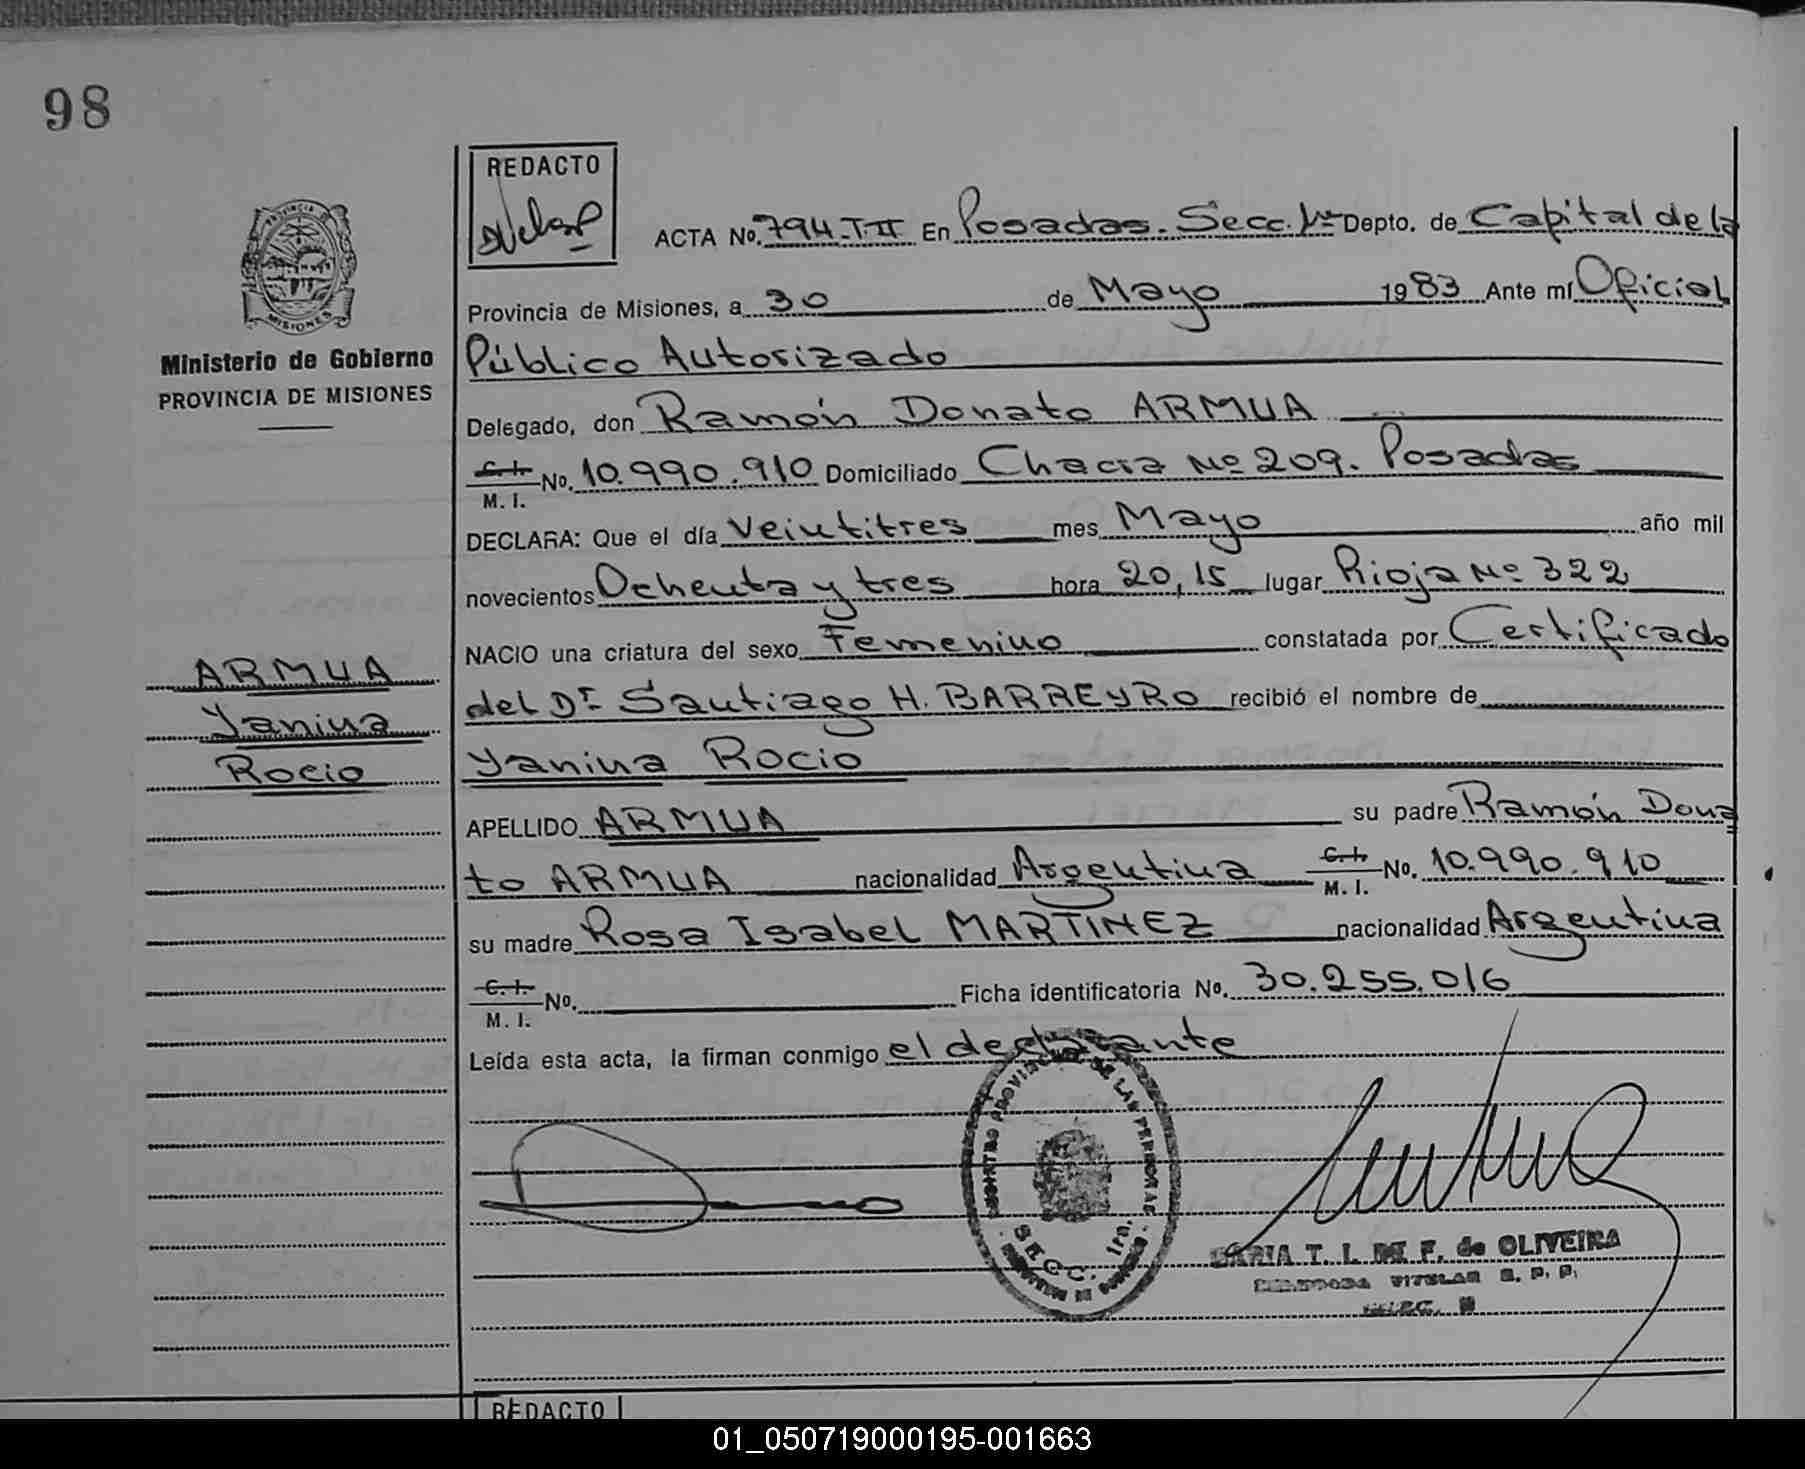 98
REDACTO
ACTA No. 794-T II En Posadas. Secc. 1ra Depto. de Capital de la
Provincia de Misiones, a 30 de Mayo 1983 Ante mí Oficial
Público Autorizado
Delegado, don Ramón Donato ARMUA
C. I. No. 10.990.910 Domiciliado Chacra Nº 209. Posadas
M. I.
DECLARA: Que el día Veintitres mes Mayo año mil
novecientos Ochenta y tres hora 20,15 lugar Rioja Nº 322
NACIO una criatura del sexo Femenino constatada por Certificado
del Dr. Santiago H. BARREYRO recibió el nombre de
Yanina Rocio
APELLIDO ARMUA su padre Ramón Dona
to ARMUA nacionalidad Argentina C. I. No. 10.990.910
M. I.
su madre Rosa Isabel MARTINEZ nacionalidad Argentina
C. I. No. Ficha identificatoria No. 30.255.016
M. I.
Leída esta acta, la firman conmigo el declarante
PROVINCIA DE MISIONES
Ministerio de Gobierno
PROVINCIA DE MISIONES
ARMUA
Yanina
Rocio
REGISTRO PROVINCIAL DE LAS PERSONAS
SECC. 1ra.
T. I. DE F. de OLIVEIRA
TITULAR R. P. P.
REDACTO
01_050719000195-001663